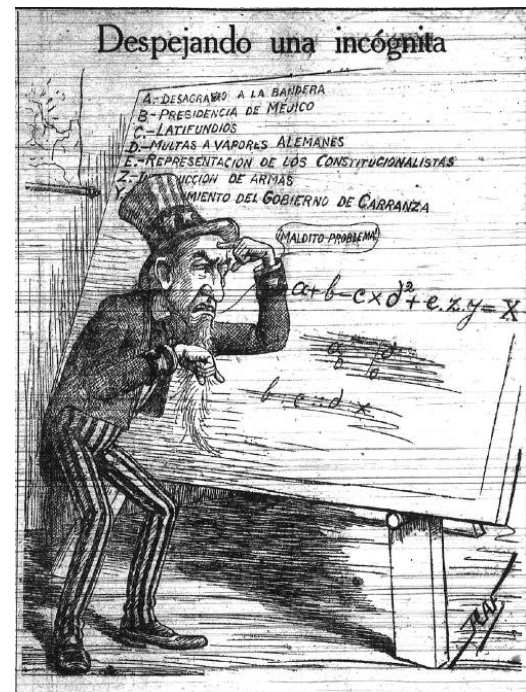 Despejando una incógnita
A.-DESAGRAVIO A LA BANDERA
B-PRESIDENCIA DE MÉJICO
C.-LATIFUNDIOS
D.-MULTAS A VAPORES ALEMANES
E.-REPRESENTACION DE LOS CONSTITUCIONALISTAS
Z.- DUCCION DE ARMAS
Y. MIENTO DEL GOBIERNO DE CARRANZA
¡MALDITO PROBLEMA!
a+b-c×d²+e.z.y=X
b-c=d x